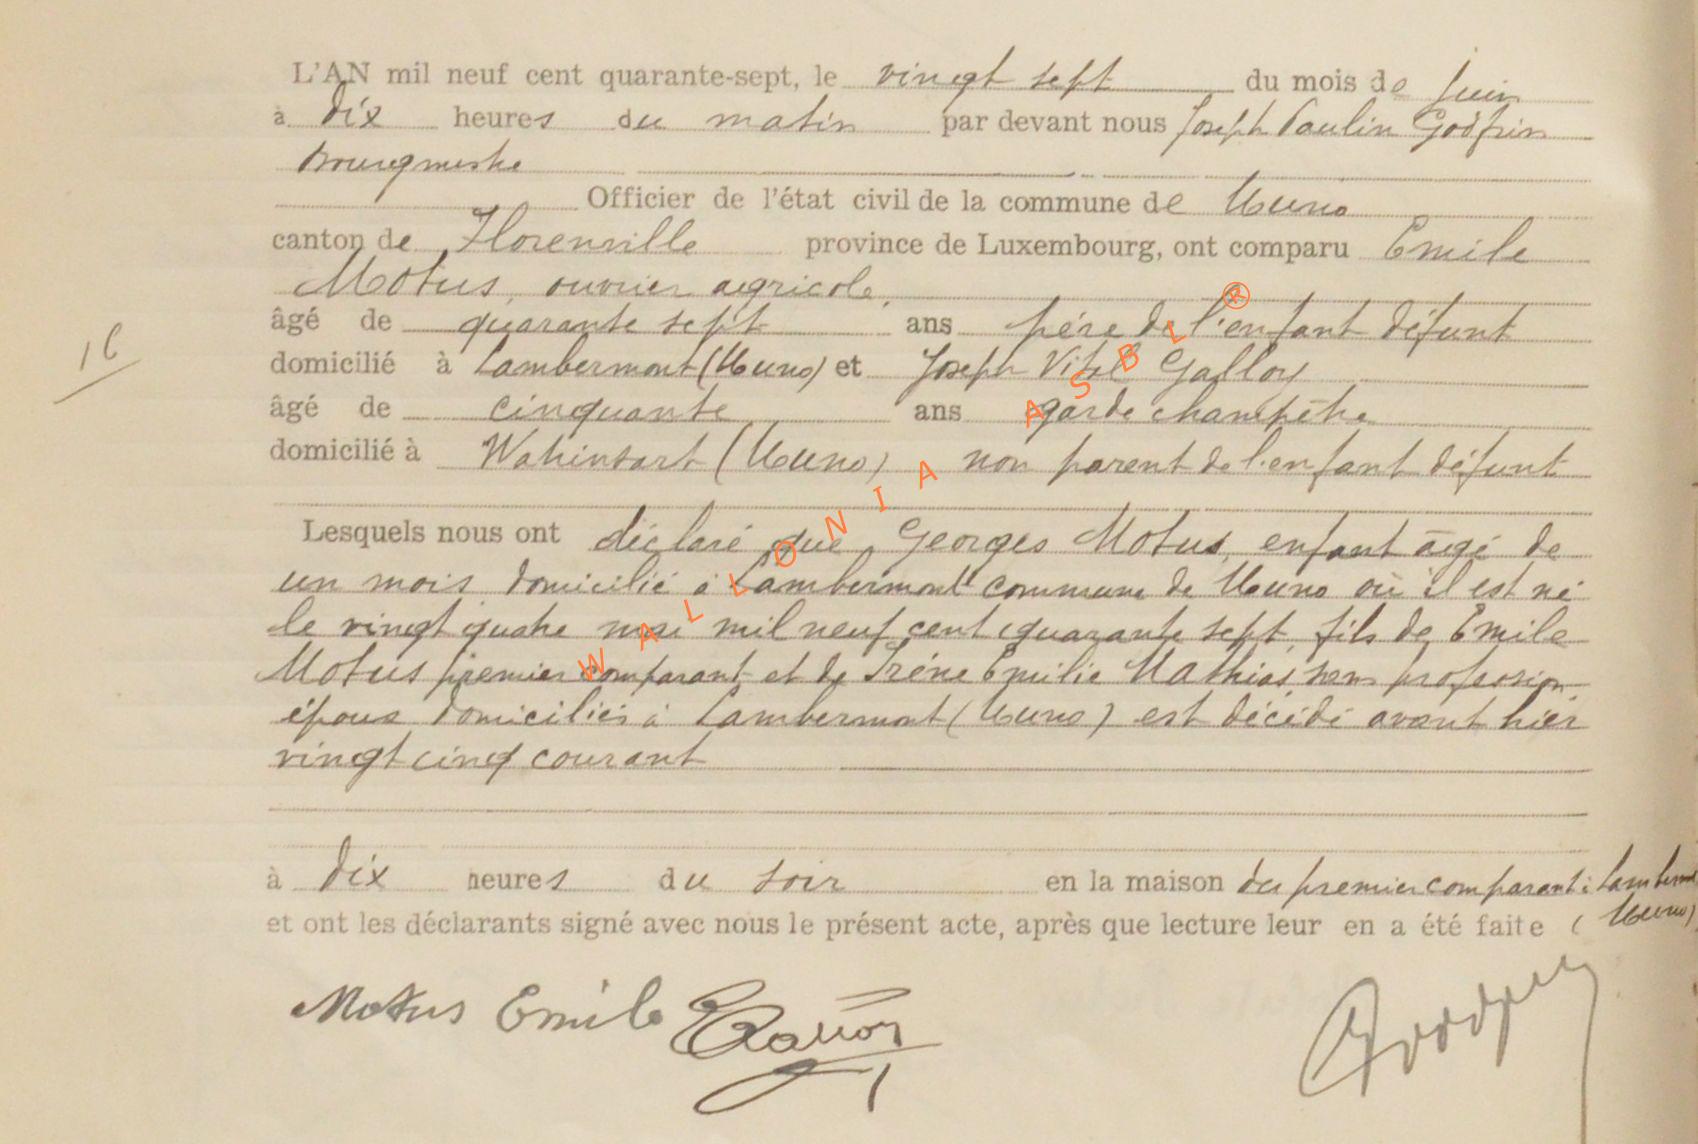 L'AN mil neuf cent quarante-sept, le vingt sept du mois de Juin
à dix heures du matin par devant nous Joseph Paulin Godfrin
Bourgmestre
Officier de l'état civil de la commune de Muno
canton de Florenville province de Luxembourg, ont comparu Emile
Motus, ouvrier agricole,
âgé de quarante sept ans père de l'enfant défunt
domicilié à Lambermont (Muno) et Joseph Vital Galloy
âgé de cinquante ans garde champêtre
domicilié à Watrinsart (Muno) non parent de l'enfant défunt
16
Lesquels nous ont déclaré que Georges Motus, enfant âgé de
un mois domicilié à Lambermont commune de Muno où il est né
le vingt quatre mai mil neuf cent quarante sept, fils de Emile
Motus premier comparant et de Irène Emilie Mathias, sans profession,
époux domiciliés à Lambermont (Muno) est décédé avant hier
vingt cinq courant
à dix heures du soir en la maison du premier comparant à Lambermont
et ont les déclarants signé avec nous le présent acte, après que lecture leur en a été faite (Muno)
Motus Emile
WALLONIA ASBL ®